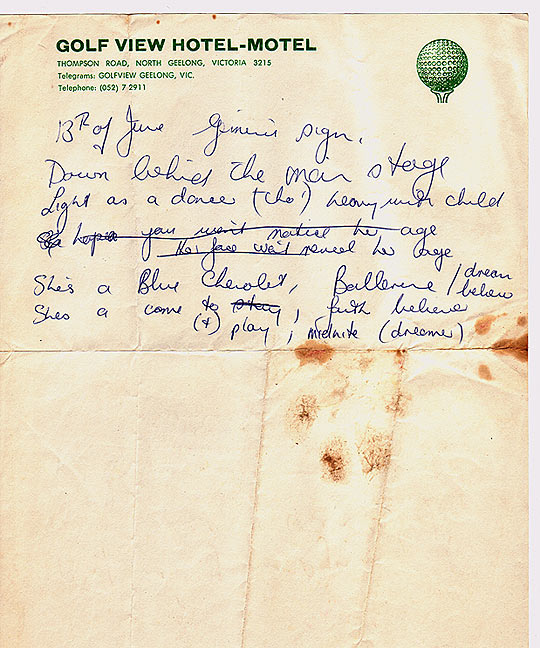 GOLF VIEW HOTEL-MOTEL
THOMPSON ROAD, NORTH GEELONG, VICTORIA 3215
Telegrams: GOLFVIEW GEELONG, VIC.
Telephone: (052) 7 2911
13th of June Gemini sign.
Down behind the main stage
Light as a dancer (tho') heavy with child
hope you won't notice her age
Her face won't reveal her age
She's a Blue Chevrolet, Ballerina / dream
believe
Shes a come to stay, faith believe
(+) play, midnite (dreamer)